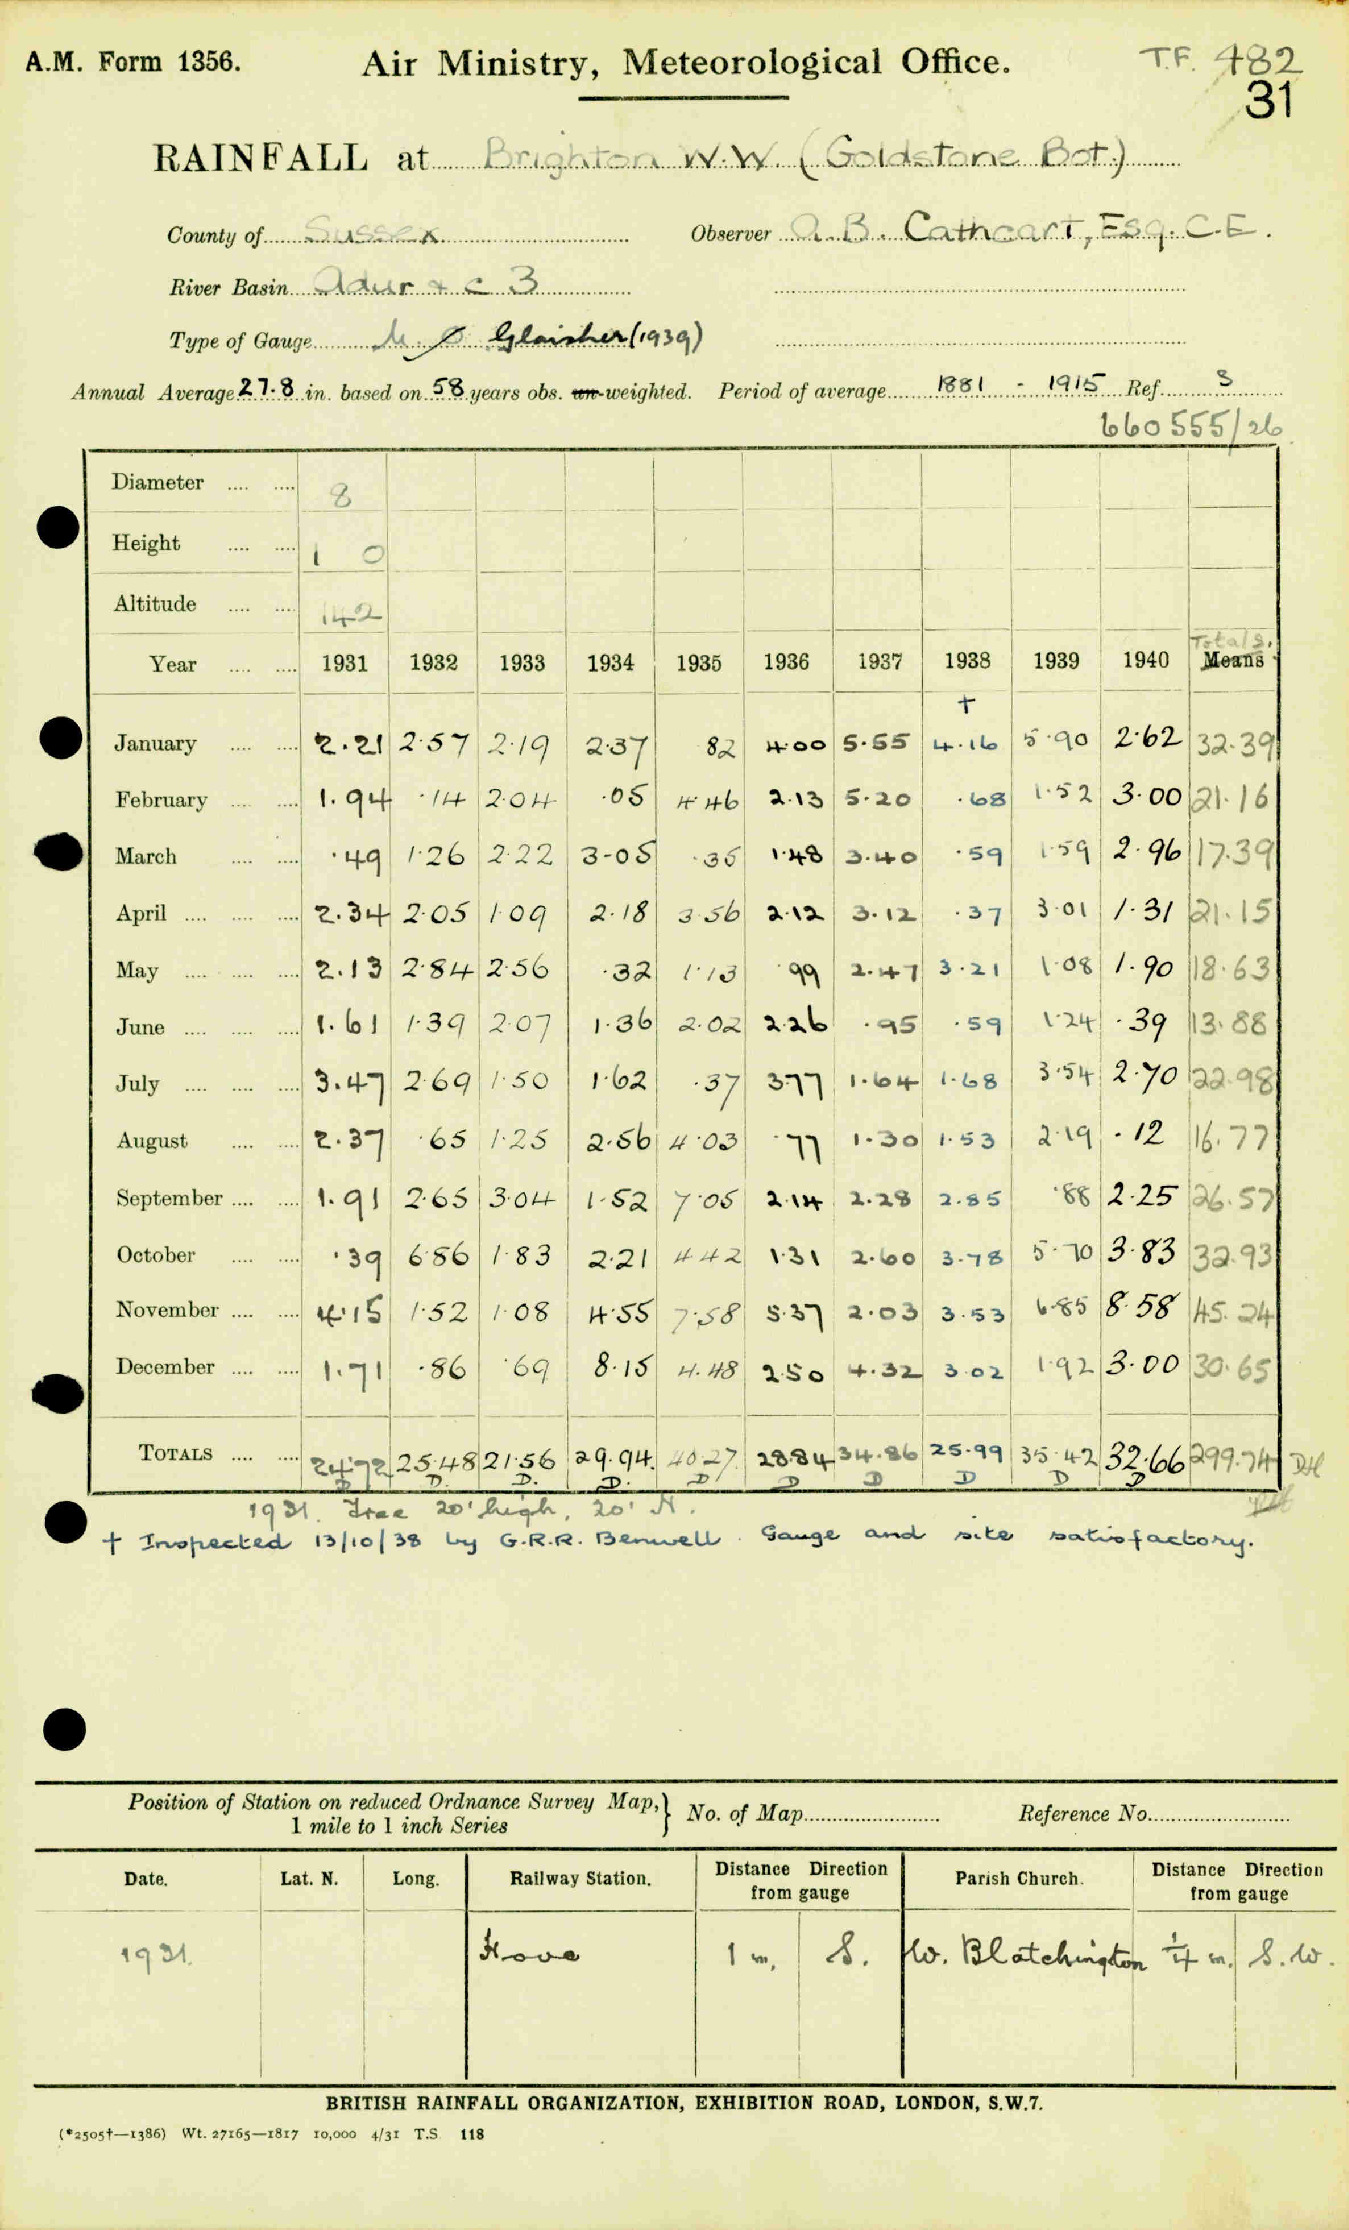 A.M. Form 1356. Air Ministry, Meteorological Office. T.F. 482
31
RAINFALL at Brighton W.W. (Goldstone Bot.)
County of Sussex Observer A. B. Cathcart, Esq. C.E.
River Basin Adur & c 3
Type of Gauge M.O. Glaisher (1939)
Annual Average 27.8 in. based on 58 years obs. un-weighted. Period of average 1881 - 1915 Ref. S
660555/26
Diameter .... .... 8
Height .... .... 1 0
Altitude .... .... 142
Totals.
Year .... .... 1931 1932 1933 1934 1935 1936 1937 1938 1939 1940 Means
†
January .... .... 2.21 2.57 2.19 2.37 82 4.00 5.55 4.16 5.90 2.62 32.39
February .... .... 1.94 .14 2.04 .05 4.46 2.13 5.20 .68 1.52 3.00 21.16
March .... .... .49 1.26 2.22 3.05 .35 1.48 3.40 .59 1.59 2.96 17.39
April .... .... .... 2.34 2.05 1.09 2.18 3.56 2.12 3.12 .37 3.01 1.31 21.15
May .... .... .... 2.13 2.84 2.56 .32 1.13 .99 2.47 3.21 1.08 1.90 18.63
June .... .... .... 1.61 1.39 2.07 1.36 2.02 2.26 .95 .59 1.24 .39 13.88
July .... .... .... 3.47 2.69 1.50 1.62 .37 3.77 1.64 1.68 3.54 2.70 22.98
August .... .... 2.37 .65 1.25 2.56 4.03 .77 1.30 1.53 2.19 .12 16.77
September .... .... 1.91 2.65 3.04 1.52 7.05 2.14 2.28 2.85 .88 2.25 26.57
October .... .... .39 6.86 1.83 2.21 4.42 1.31 2.60 3.78 5.70 3.83 32.93
November .... .... 4.15 1.52 1.08 4.55 7.58 5.37 2.03 3.53 6.85 8.58 45.24
December .... .... 1.71 .86 .69 8.15 4.48 2.50 4.32 3.02 1.92 3.00 30.65
TOTALS .... .... 24.72 25.48 21.56 29.94 40.27 28.84 34.86 25.99 35.42 32.66 299.74 DH
D D. D. D. D D D D D D
1931. Tree 20' high, 20' N.
† Inspected 13/10/38 by G.R.R. Benwell. Gauge and site satisfactory.
Position of Station on reduced Ordnance Survey Map, } No. of Map Reference No.
1 mile to 1 inch Series
Date. Lat. N. Long. Railway Station. Distance Direction from gauge Parish Church. Distance Direction from gauge
1931. Hove 1 m. S. W. Blatchington ¼ m. S.W.
BRITISH RAINFALL ORGANIZATION, EXHIBITION ROAD, LONDON, S.W.7.
(*2505†—1386) Wt. 27165—1817 10,000 4/31 T.S. 118